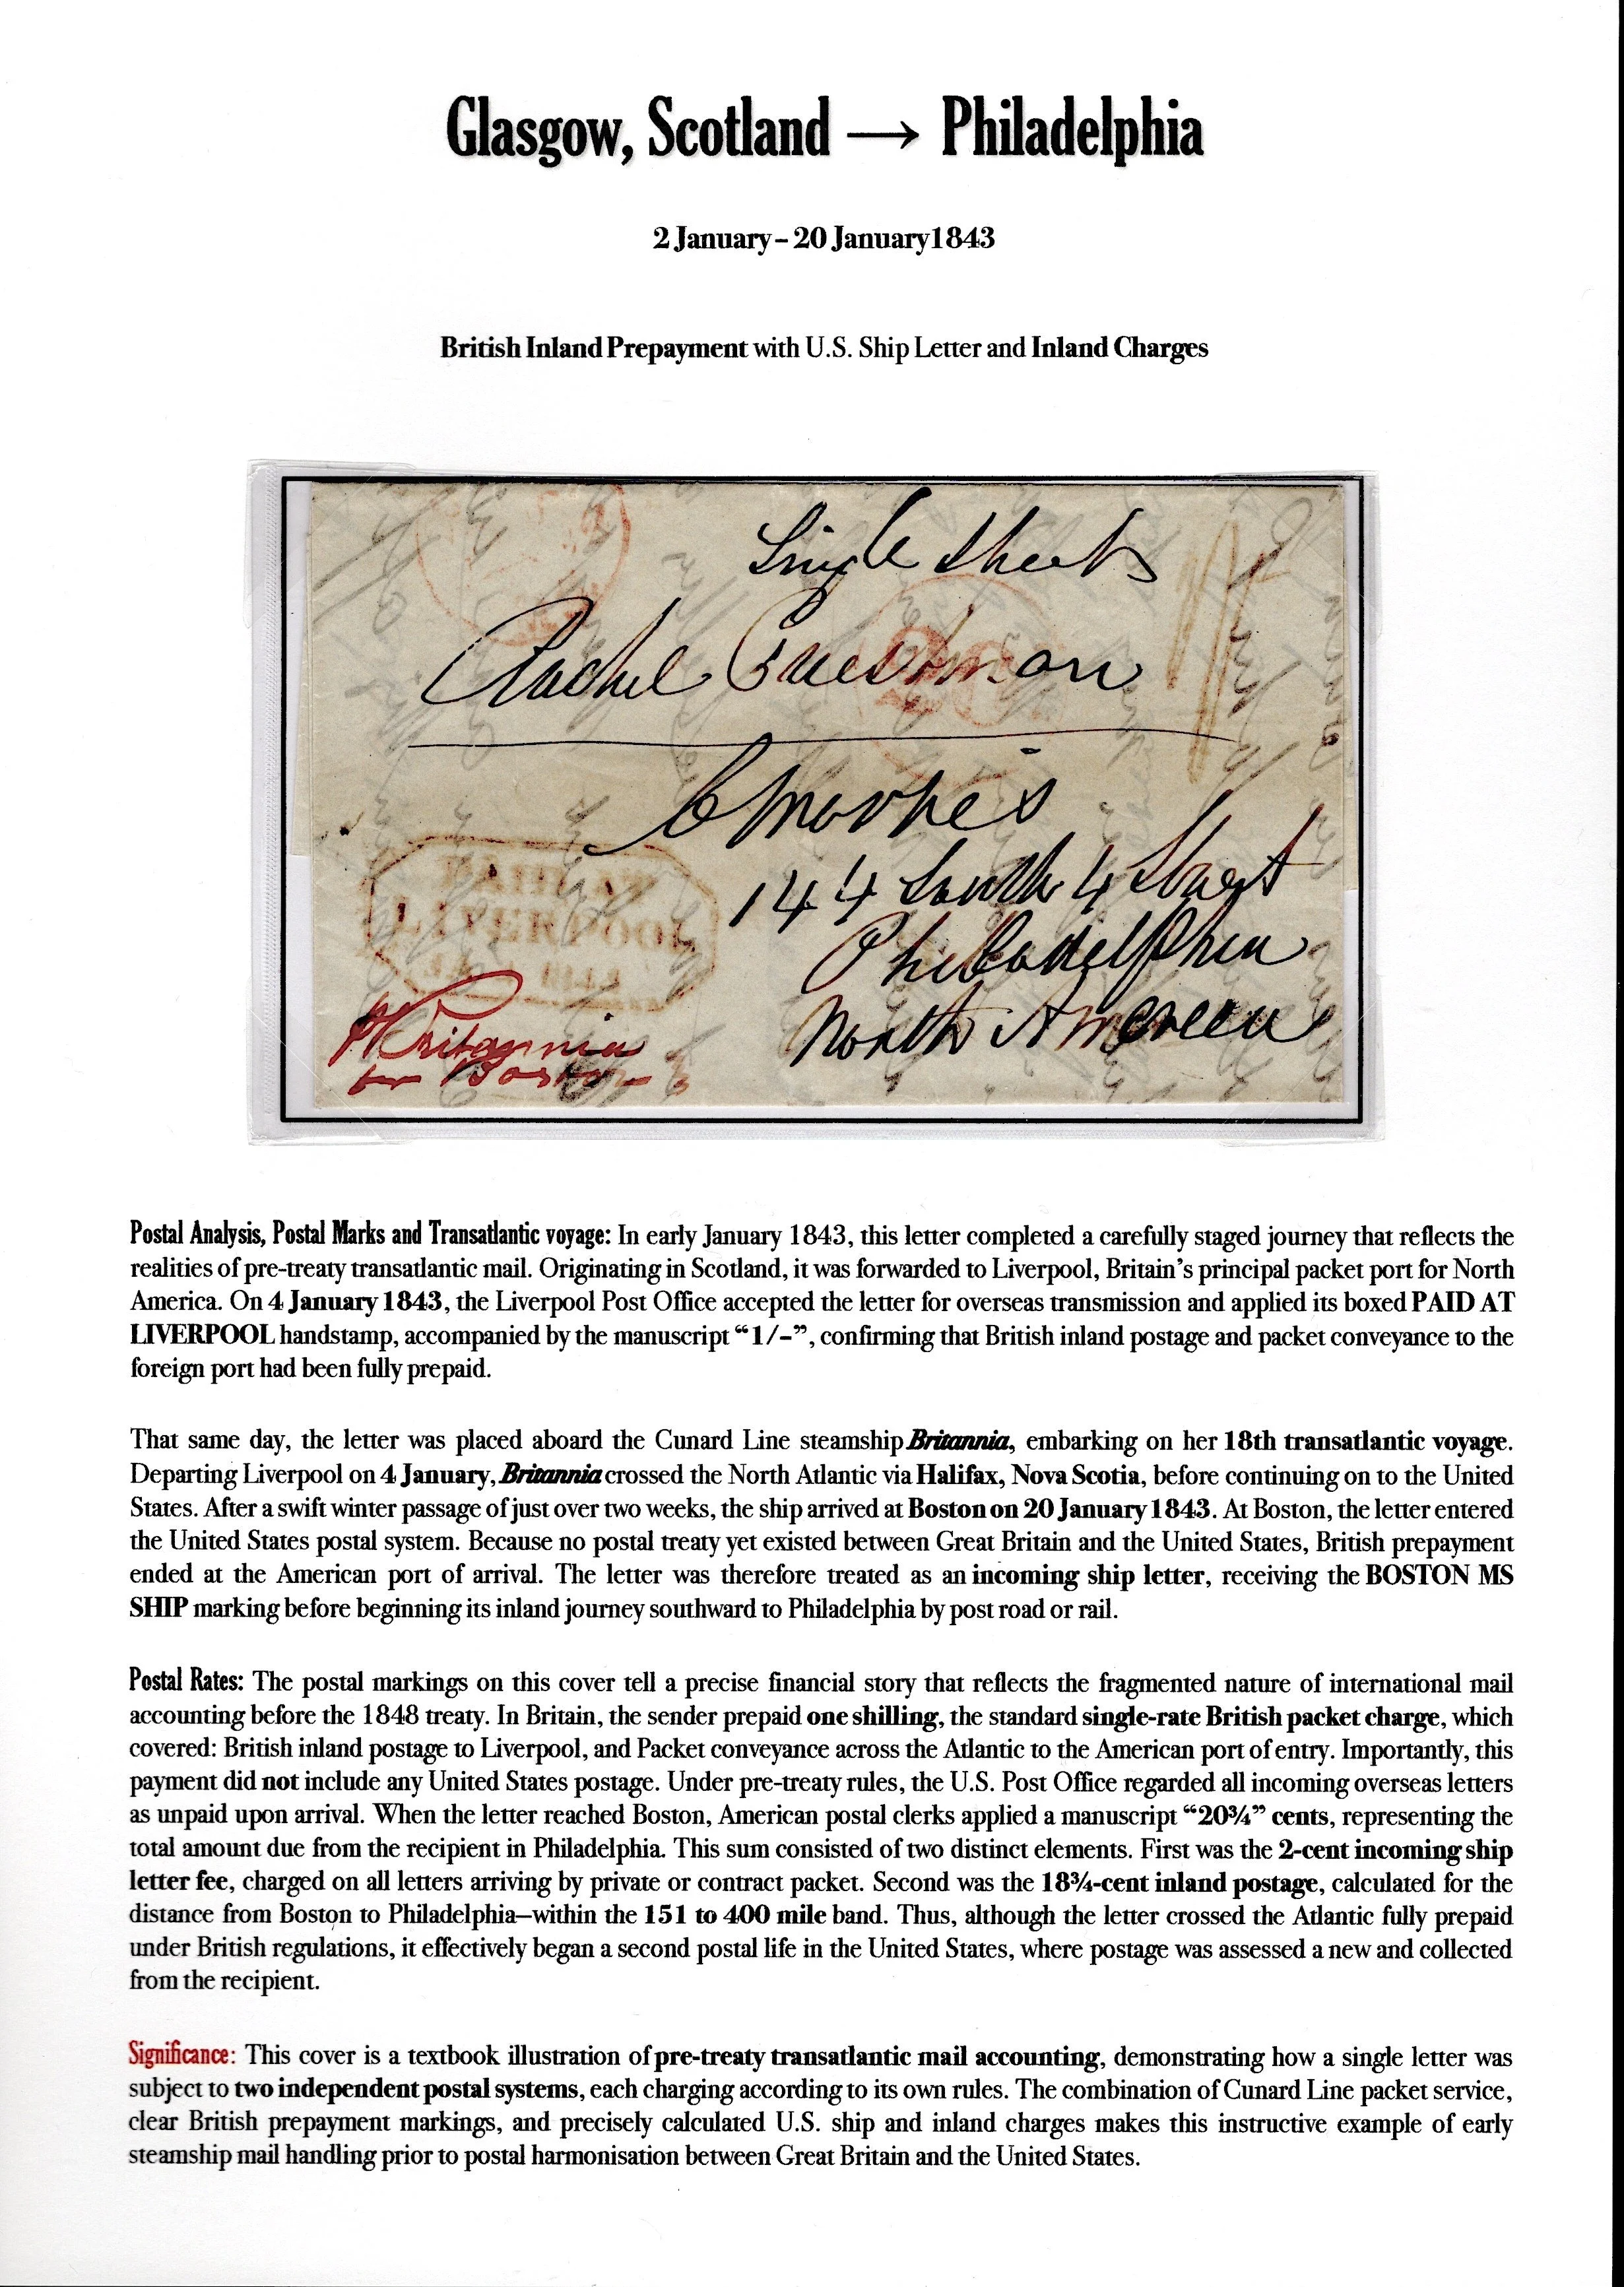 Glasgow, Scotland → Philadelphia
2 January – 20 January1843
British Inland Prepayment with U.S. Ship Letter and Inland Charges
Single Sheets
Rachel
144 South 4 Street
Philadelphia
North America
PAID AT
LIVERPOOL
Britannia
for Boston
Postal Analysis, Postal Marks and Transatlantic voyage: In early January 1843, this letter completed a carefully staged journey that reflects the
realities of pre-treaty transatlantic mail. Originating in Scotland, it was forwarded to Liverpool, Britain’s principal packet port for North
America. On 4 January 1843, the Liverpool Post Office accepted the letter for overseas transmission and applied its boxed PAID AT
LIVERPOOL handstamp, accompanied by the manuscript “1/-”, confirming that British inland postage and packet conveyance to the
foreign port had been fully prepaid.
That same day, the letter was placed aboard the Cunard Line steamship Britannia, embarking on her 18th transatlantic voyage.
Departing Liverpool on 4 January, Britannia crossed the North Atlantic via Halifax, Nova Scotia, before continuing on to the United
States. After a swift winter passage of just over two weeks, the ship arrived at Boston on 20 January 1843. At Boston, the letter entered
the United States postal system. Because no postal treaty yet existed between Great Britain and the United States, British prepayment
ended at the American port of arrival. The letter was therefore treated as an incoming ship letter, receiving the BOSTON MS
SHIP marking before beginning its inland journey southward to Philadelphia by post road or rail.
Postal Rates: The postal markings on this cover tell a precise financial story that reflects the fragmented nature of international mail
accounting before the 1848 treaty. In Britain, the sender prepaid one shilling, the standard single-rate British packet charge, which
covered: British inland postage to Liverpool, and Packet conveyance across the Atlantic to the American port of entry. Importantly, this
payment did not include any United States postage. Under pre-treaty rules, the U.S. Post Office regarded all incoming overseas letters
as unpaid upon arrival. When the letter reached Boston, American postal clerks applied a manuscript “20¾” cents, representing the
total amount due from the recipient in Philadelphia. This sum consisted of two distinct elements. First was the 2-cent incoming ship
letter fee, charged on all letters arriving by private or contract packet. Second was the 18¾-cent inland postage, calculated for the
distance from Boston to Philadelphia—within the 151 to 400 mile band. Thus, although the letter crossed the Atlantic fully prepaid
under British regulations, it effectively began a second postal life in the United States, where postage was assessed a new and collected
from the recipient.
Significance: This cover is a textbook illustration of pre-treaty transatlantic mail accounting, demonstrating how a single letter was
subject to two independent postal systems, each charging according to its own rules. The combination of Cunard Line packet service,
clear British prepayment markings, and precisely calculated U.S. ship and inland charges makes this instructive example of early
steamship mail handling prior to postal harmonisation between Great Britain and the United States.